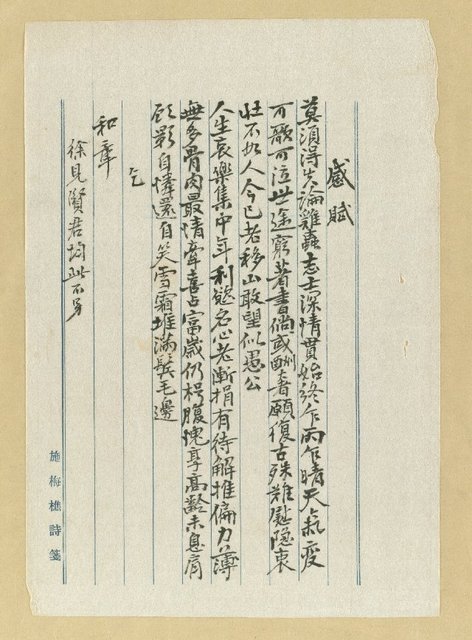 感賦
莫須得失論雞蟲志士深情貫始終乍雨乍晴天氣變
可歌可泣世途窮著書倘或酬耆願復古殊難慰隱衷
壯不如人今已老移山敢望似愚公
人生哀樂集中年利慾名心老漸捐有待解推偏力薄
無多骨肉最情牽喜占富歲仍枵腹愧享高齡未息肩
顧影自憐還自笑雪霜堆滿鬢毛邊
乞
和章
徐見賢君均此不另
施梅樵詩箋